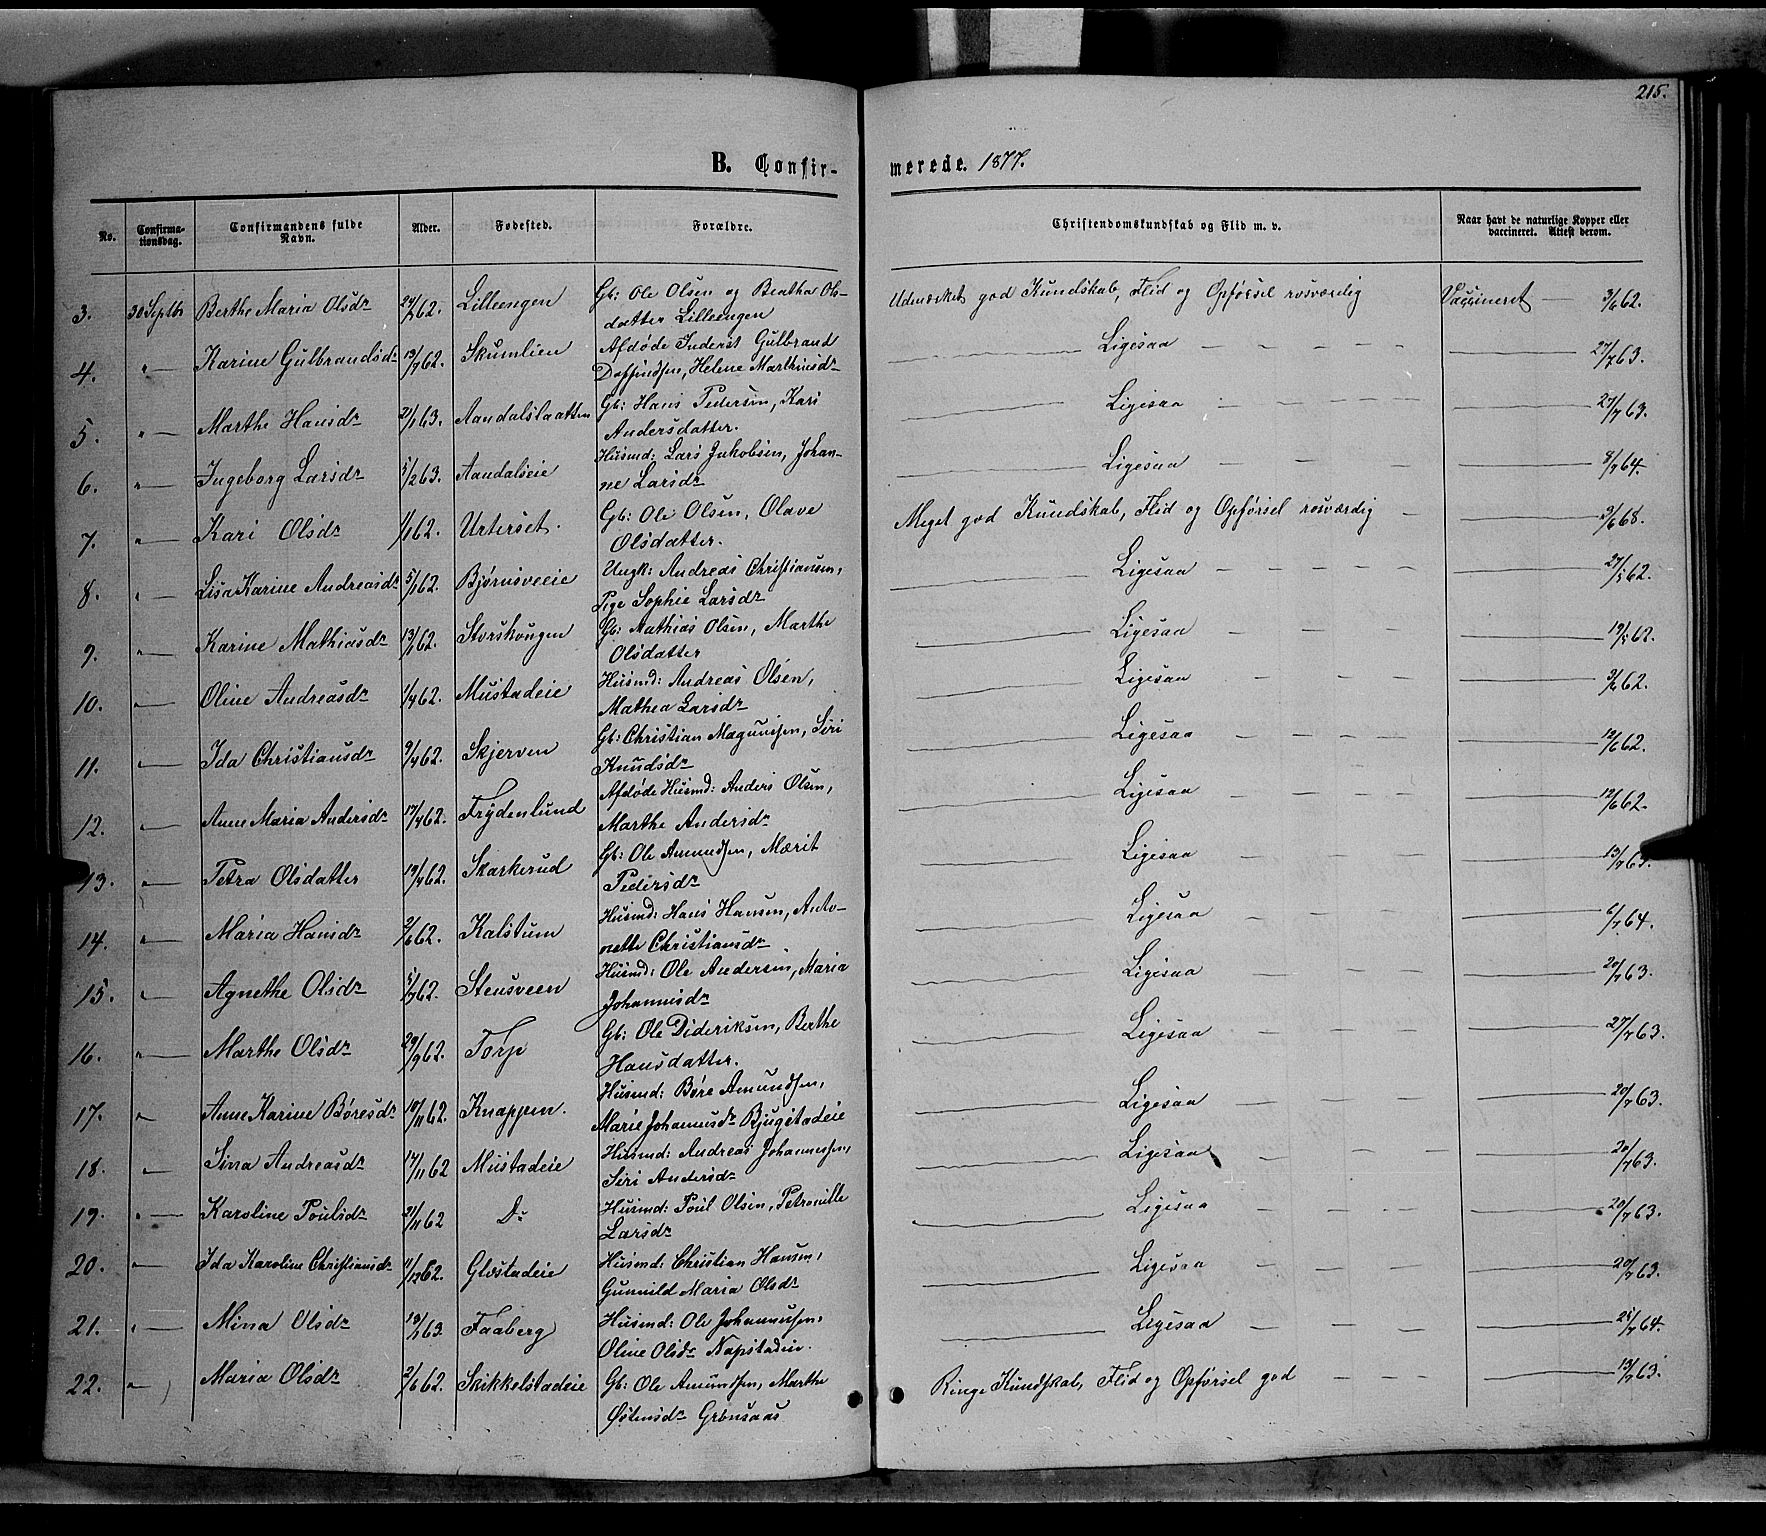 215.
B. Confir- merede. 1877.
No. Confirma- tionsdag. Confirmandens fulde Navn. Alder. Fødested. Forældre. Christendomskundskab og Flid m. v. Naar havt de naturlige Kopper eller vaccineret. Attest derom.
3. 30 Septbr Berthe Maria Olsdr 62. Lilleengen Gb: Ole Olsen og Beatha Ols- Udmærket god Kundskab, Flid og Opførsel rosværdig Vaccineret — 3/6 62.
datter Lilleengen
4. " Karine Gulbrandsdr 13/7 62. Skumlien Afdøde Inderst Gulbrand Ligesaa 27/7 63.
Daffindsen, Helene Marthinsdr
5. " Marthe Hansdr 21/1 63. Aandalslaatten Gb: Hans Pedersen, Kari Ligesaa 27/7 63.
Andersdatter.
6. " Ingeborg Larsdr 5/2 63. Aandalseie Husmd: Lars Jakobsen, Johan- Ligesaa 8/7 64.
ne Larsdr
7. " Kari Olsdr 1/1 62. Urterset. Gb: Ole Olsen, Olave Meget god Kundskab, Flid og Opførsel rosværdig 3/6 68.
Olsdatter.
8. " Lisa Karine Andreasdr 5/1 62. Bjørnsveeie Ungk: Andreas Christiansen, Ligesaa 27/5 62.
Pige Sophie Larsdr
9. " Karine Mathiasdr 13/1 62. Storskougen Gb: Mathias Olsen, Marthe Ligesaa 19/5 62.
Olsdatter
10. " Oline Andreasdr 1/4 62. Mustadeie Husmd: Andreas Olsen, Ligesaa 3/6 62.
Mathea Larsdr
11. " Ida Christiansdr 9/4 62. Skjerven Gb: Christian Magnussen, Siri Ligesaa 12/6 62.
Knudsdr
12. " Anne Maria Andersdr 17/4 62. Frydenlund Afdøde Husmd: Anders Olsen, Ligesaa 12/6 62.
Marthe Andersdr
13. " Petra Olsdatter 19/4 62. Skarkerud Gb: Ole Amundsen, Marit Ligesaa 13/7 63.
Pedersdr
14. " Maria Hansdr 2/6 62. Kalstum Husmd: Hans Hansen, Anto- Ligesaa 6/7 64.
nette Christiansdr
15. " Agnethe Olsdr 5/7 62. Stensveen Husmd: Ole Andersen, Maria Ligesaa 20/7 63.
Johannesdr
16. " Marthe Olsdr 29/9 62. Torp Gb: Ole Dideriksen, Berthe Ligesaa 27/7 63.
Hansdatter.
17. " Anne Karine Børesdr 10/11 62. Knappen. Husmd: Børe Amundsen, Ligesaa 20/7 63.
Marie Johannesdr Bjugstadeie
18. " Sina Andreasdr 17/11 62 Mustadeie Husmd: Andreas Johannessen, Ligesaa 20/7 63.
Siri Andersdr
19. " Karoline Poulsdr 21/11 62 Do Husmd: Poul Olsen, Petronille Ligesaa 20/7 63.
Larsdr
20. " Ida Karoline Christiansdr 11/12 62. Glæstadeie Husmd: Christian Hansen, Ligesaa 20/7 63.
Gunnild Maria Olsdr
21. " Mina Olsdr 13/1 63. Faaberg Husmd: Ole Johannesen, Ligesaa 25/7 64.
Oline Olsdr
22. " Maria Olsdr 2/6 62. Skikkelstadeie Gb: Ole Amundsen, Marthe Ringe Kundskab, Flid og Opførsel god 13/7 63.
Østensdr Grønsaas